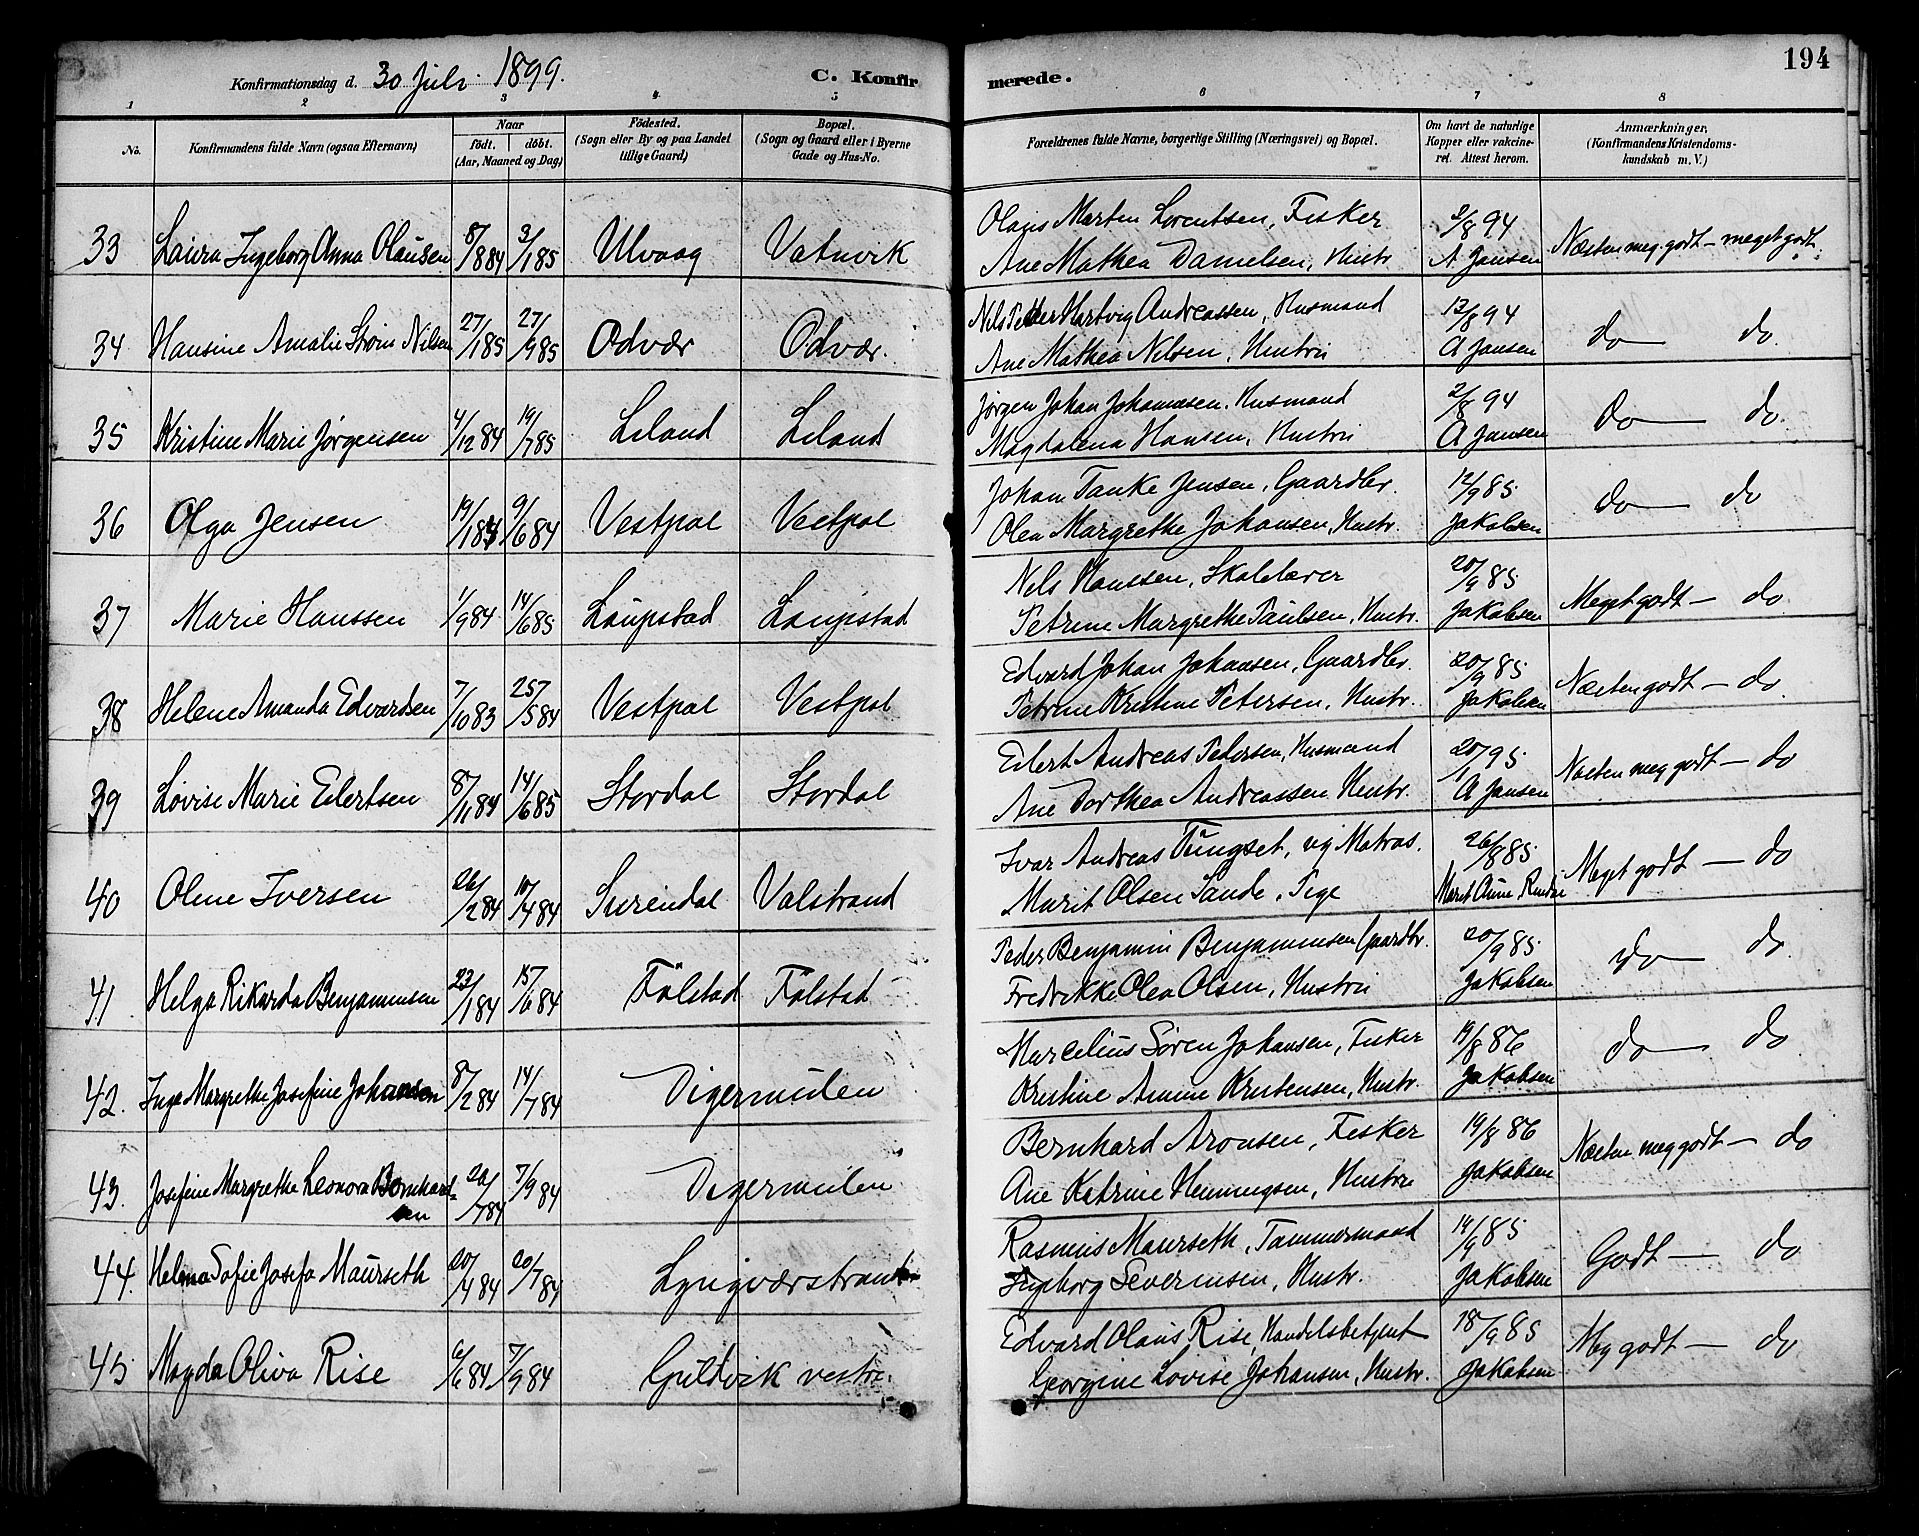 194
Konfirmationsdag d. 30 Juli 1899.
C. Konfirmerede.
1 2 3 4 5 6 7 8
No.
Konfirmandens fulde Navn (ogsaa Efternavn)
Naar
født. døbt.
(Aar, Maaned og Dag)
Fødested.
(Sogn eller By og paa Landet
tillige Gaard)
Bopæl.
(Sogn og Gaard eller i Byerne
Gade og Hus-No.
Forældrenes fulde Navne, borgerlige Stilling (Næringsvei) og Bopæl.
Om havt de naturlige
Kopper eller vakcine-
ret. Attest herom.
Anmærkninger,
(Konfirmandens Kristendoms-
kundskab m. V.)
33 Laura Ingeborg Anna Olausen 8/8 84 3/1 85 Ulvaag Vatnvik
Olaus Marten Lorentsen, Fisker 2/8 94
Ane Mathea Danielsen, Hustr A Jansen Næsten meg. godt — meget godt.
34 Hansine Amalie Strøm Nilsen 27/1 85 27/9 85 Odvær Odvær.
Nils Peder Hartvig Andreassen, Husmand 12/8 94
Ane Mathea Nilsen, Hustru A Jansen do — do.
35 Kristine Marie Jørgensen 4/12 84 19/7 85 Liland Liland
Jørgen Johan Johannesen, Husmand 2/8 94
Magdalena Hansen, Hustru A Jansen do — do.
36 Olga Jensen 19/1 84 9/6 84 Vestpol Vestpol
Johan Tanke Jensen, Gaardbr. 12/9 85
Olea Margrethe Johansen, Hustr. Jakobsen do — do
37 Marie Hanssen 1/9 84 14/6 85 Laupstad Laupstad
Nils Hanssen, Skolelærer 20/9 85
Petrine Margrethe Paulsen, Hustr. Jakobsen Meget godt — do.
38 Helene Amanda Edvardsen 7/10 83 25/5 84 Vestpol Vestpol
Edvard Johan Johansen, Gaardbr. 20/9 85
Petrine Kristine Petersen, Hustr. Jakobsen Næsten godt — do.
39 Lovise Marie Eilertsen 8/11 84 14/6 85 Stordal Stordal
Eilert Andreas Pedersen, Husmand 20/1 95
Ane Dorthea Andreassen Hustr. A Jansen Næsten meg godt — do
40 Oline Iversen 26/2 84 10/4 84 Surendal Valstrand
Ivar Andreas Tungset, ug Matros. 26/8 85
Marit Olsen Sande, Pige Marit Aune Meget godt — do
41 Helga Rikarda Benjaminsen 23/1 84 15/6 84 Følstad Følstad
Peder Benjamin Benjaminsen Gaardbr. 20/9 85
Fredrikke Olea Olsen, Hustru Jakobsen do — do.
42. Inga Margrethe Josefine Johansen 8/2 84 14/7 84 Digermulen
Marcelius Søren Johansen, Fisker 19/8 86
Kristine Amine Kristensen, Hustr. Jakobsen do — do
43. Josefine Margrethe Leonora Bernhard-
sen 20/7 84 7/9 84 Digermulen
Bernhard Aronsen, Fisker 19/8 86
Ane Katrine Henningsen, Hustru Jakobsen Næsten meg godt — do
44. Helma Sofie Josefa Maurseth 20/4 84 20/7 84 Lyngværstrand
Rasmus Maurseth, Tømmermand 14/9 85
Ingeborg Severinsen, Hustr. Jakobsen Godt — do
45 Magda Oliva Rise 6/6 84 7/9 84 Guldvik vestre.
Edvard Olaus Rise, Handelsbetjent 18/9 85
Georgine Lovise Johansen, Hustr. Jakobsen Meg godt — do